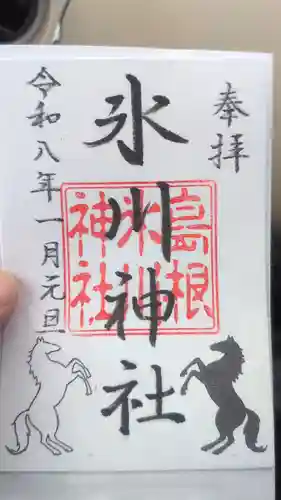 奉拝
氷川神社
島根
氷川
神社
令和八年一月元旦